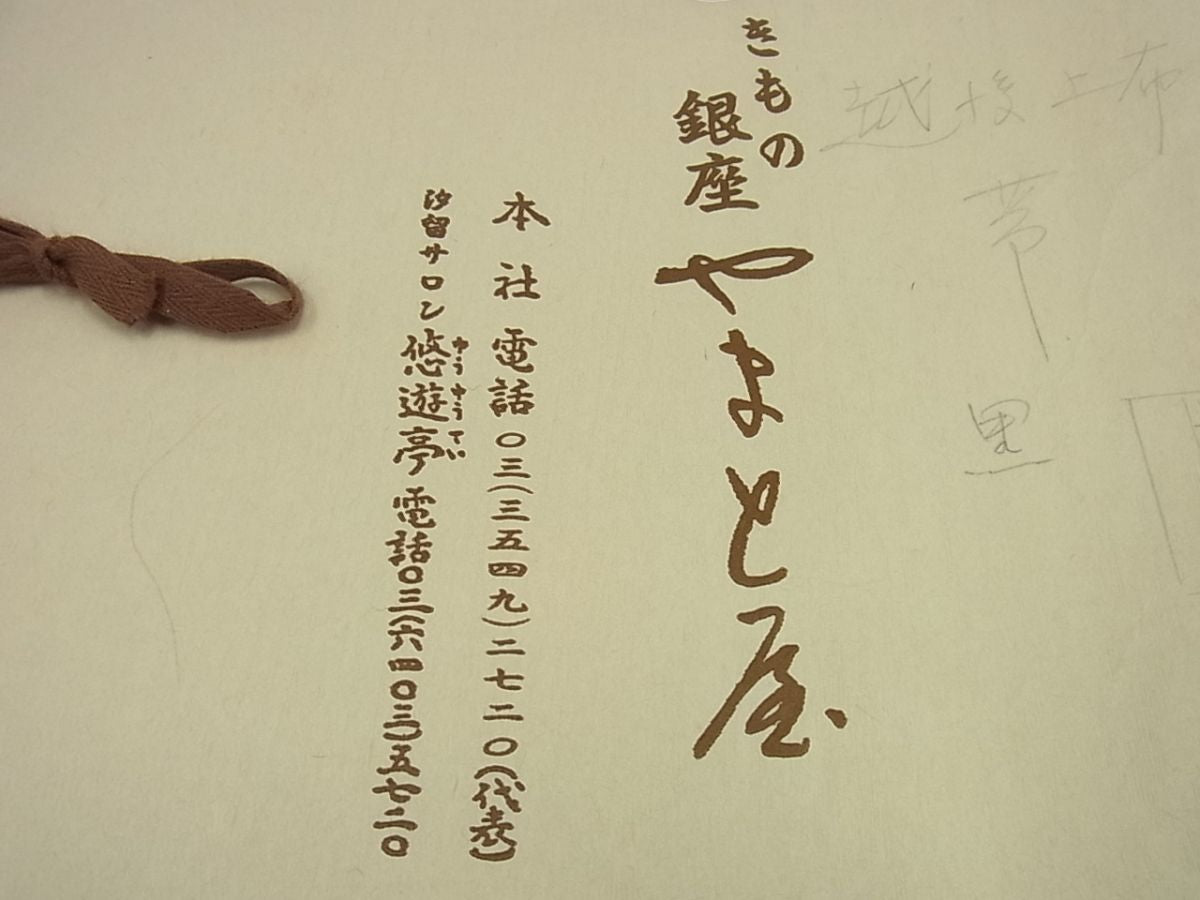 越後上布
帯
黒
きもの
銀座
やまと屋
本社 電話〇三(三五四九)二七二〇(代表)
汐留サロン 悠遊亭 電話〇三(六四〇三)五七二〇
ゆうゆうてい